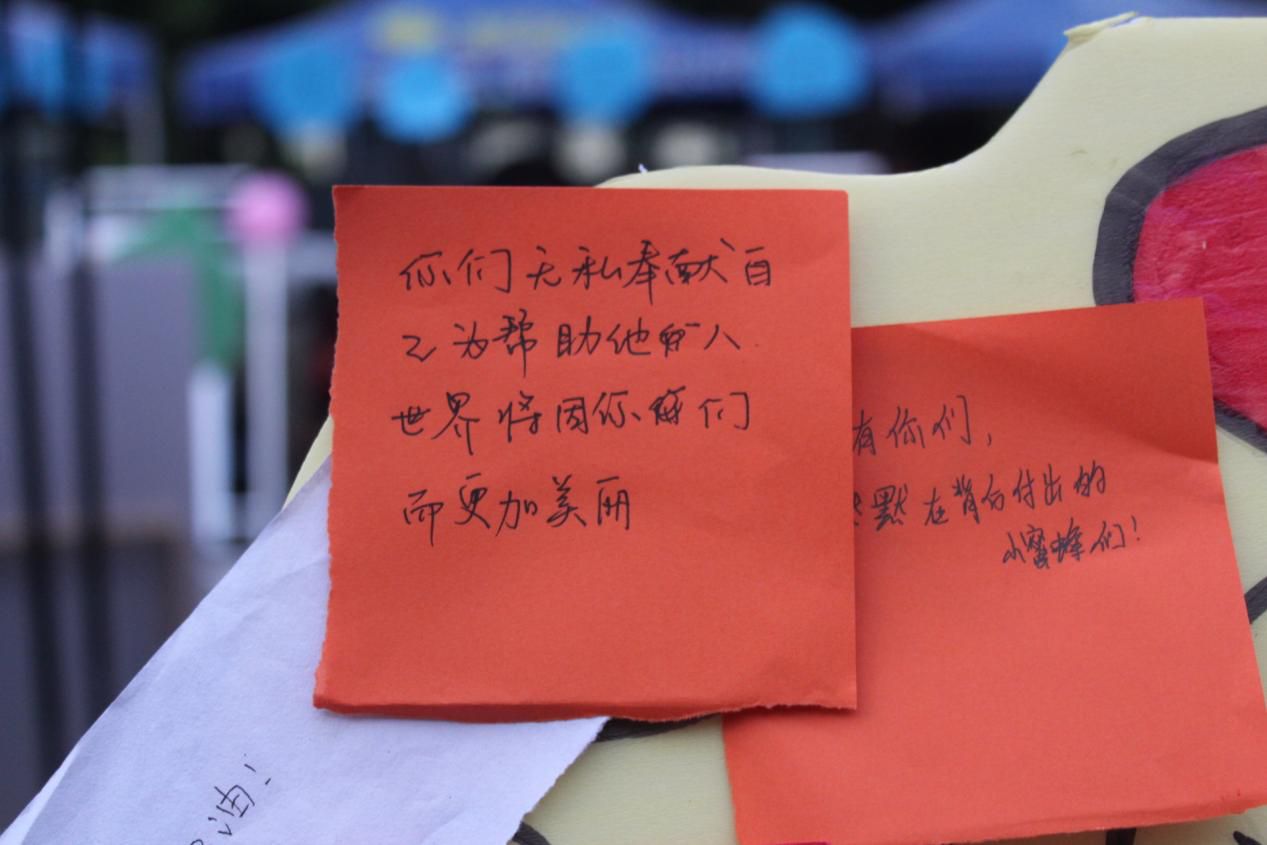 你们无私奉献自
己为帮助他人
世界将因你们
而更加美丽
有你们，
默在背后付出的
小蜜蜂们！
油！